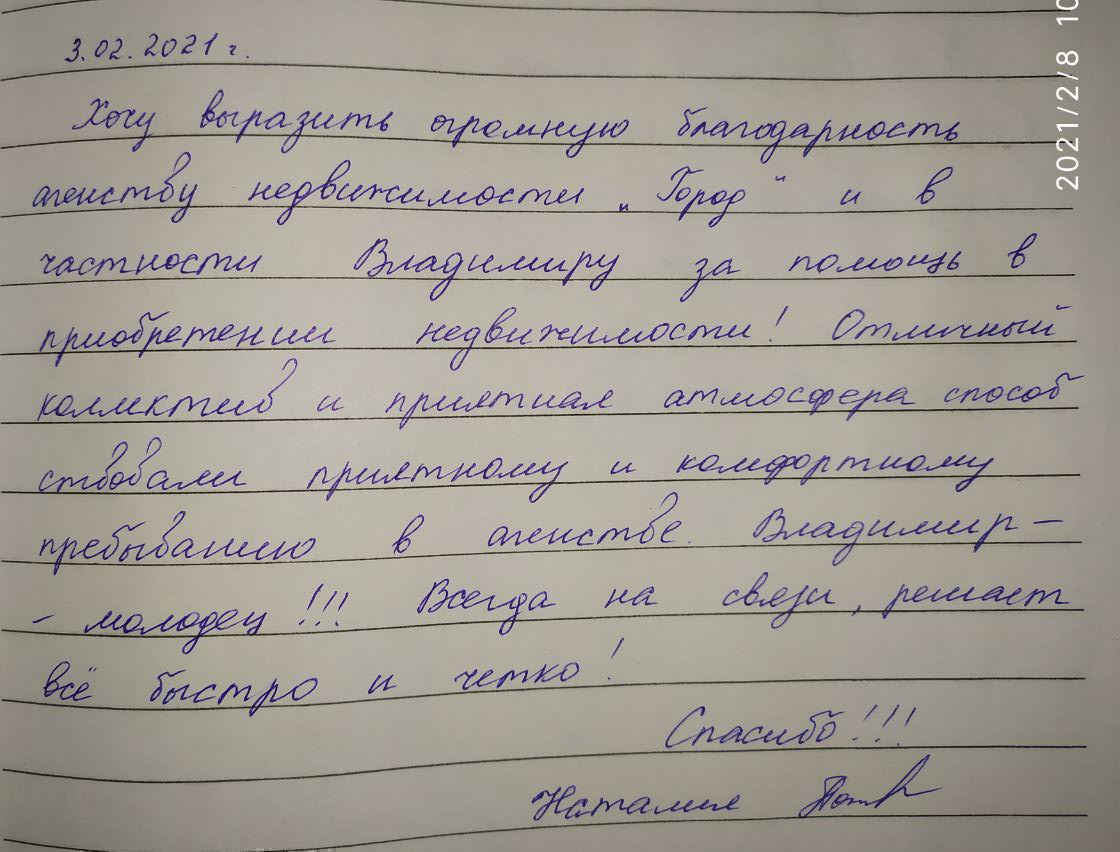 3.02.2021 г.
Хочу выразить огромную благодарность
агенству недвижимости „Город“ и в
частности Владимиру за помощь в
приобретении недвижимости! Отличный
коллектив и приятная атмосфера способ
ствовали приятному и комфортному
пребыванию в агенстве. Владимир –
- молодец!!! Всегда на связи, решает
всё быстро и четко!
Спасибо!!!
Наталия
2021/2/8 10